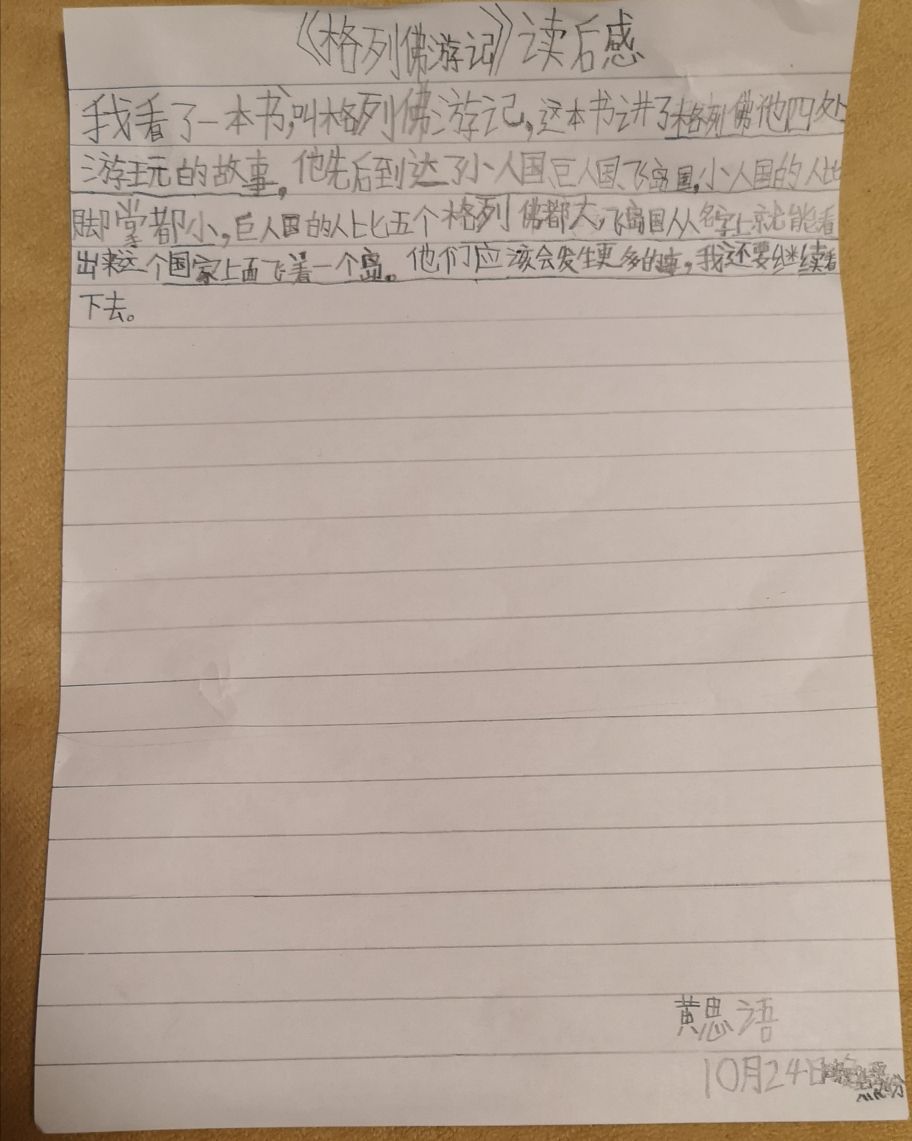 《格列佛游记》读后感
我看了一本书,叫格列佛游记,这本书讲了格列佛他四处
游玩的故事,他先后到达了小人国、巨人国、飞岛国,小人国的人比
脚掌都小,巨人国的人比五个格列佛都大,飞岛国从名字上就能看
出来这个国家上面飞着一个岛。他们应该会发生更多的事,我还要继续看
下去。
黄思语
10月24日